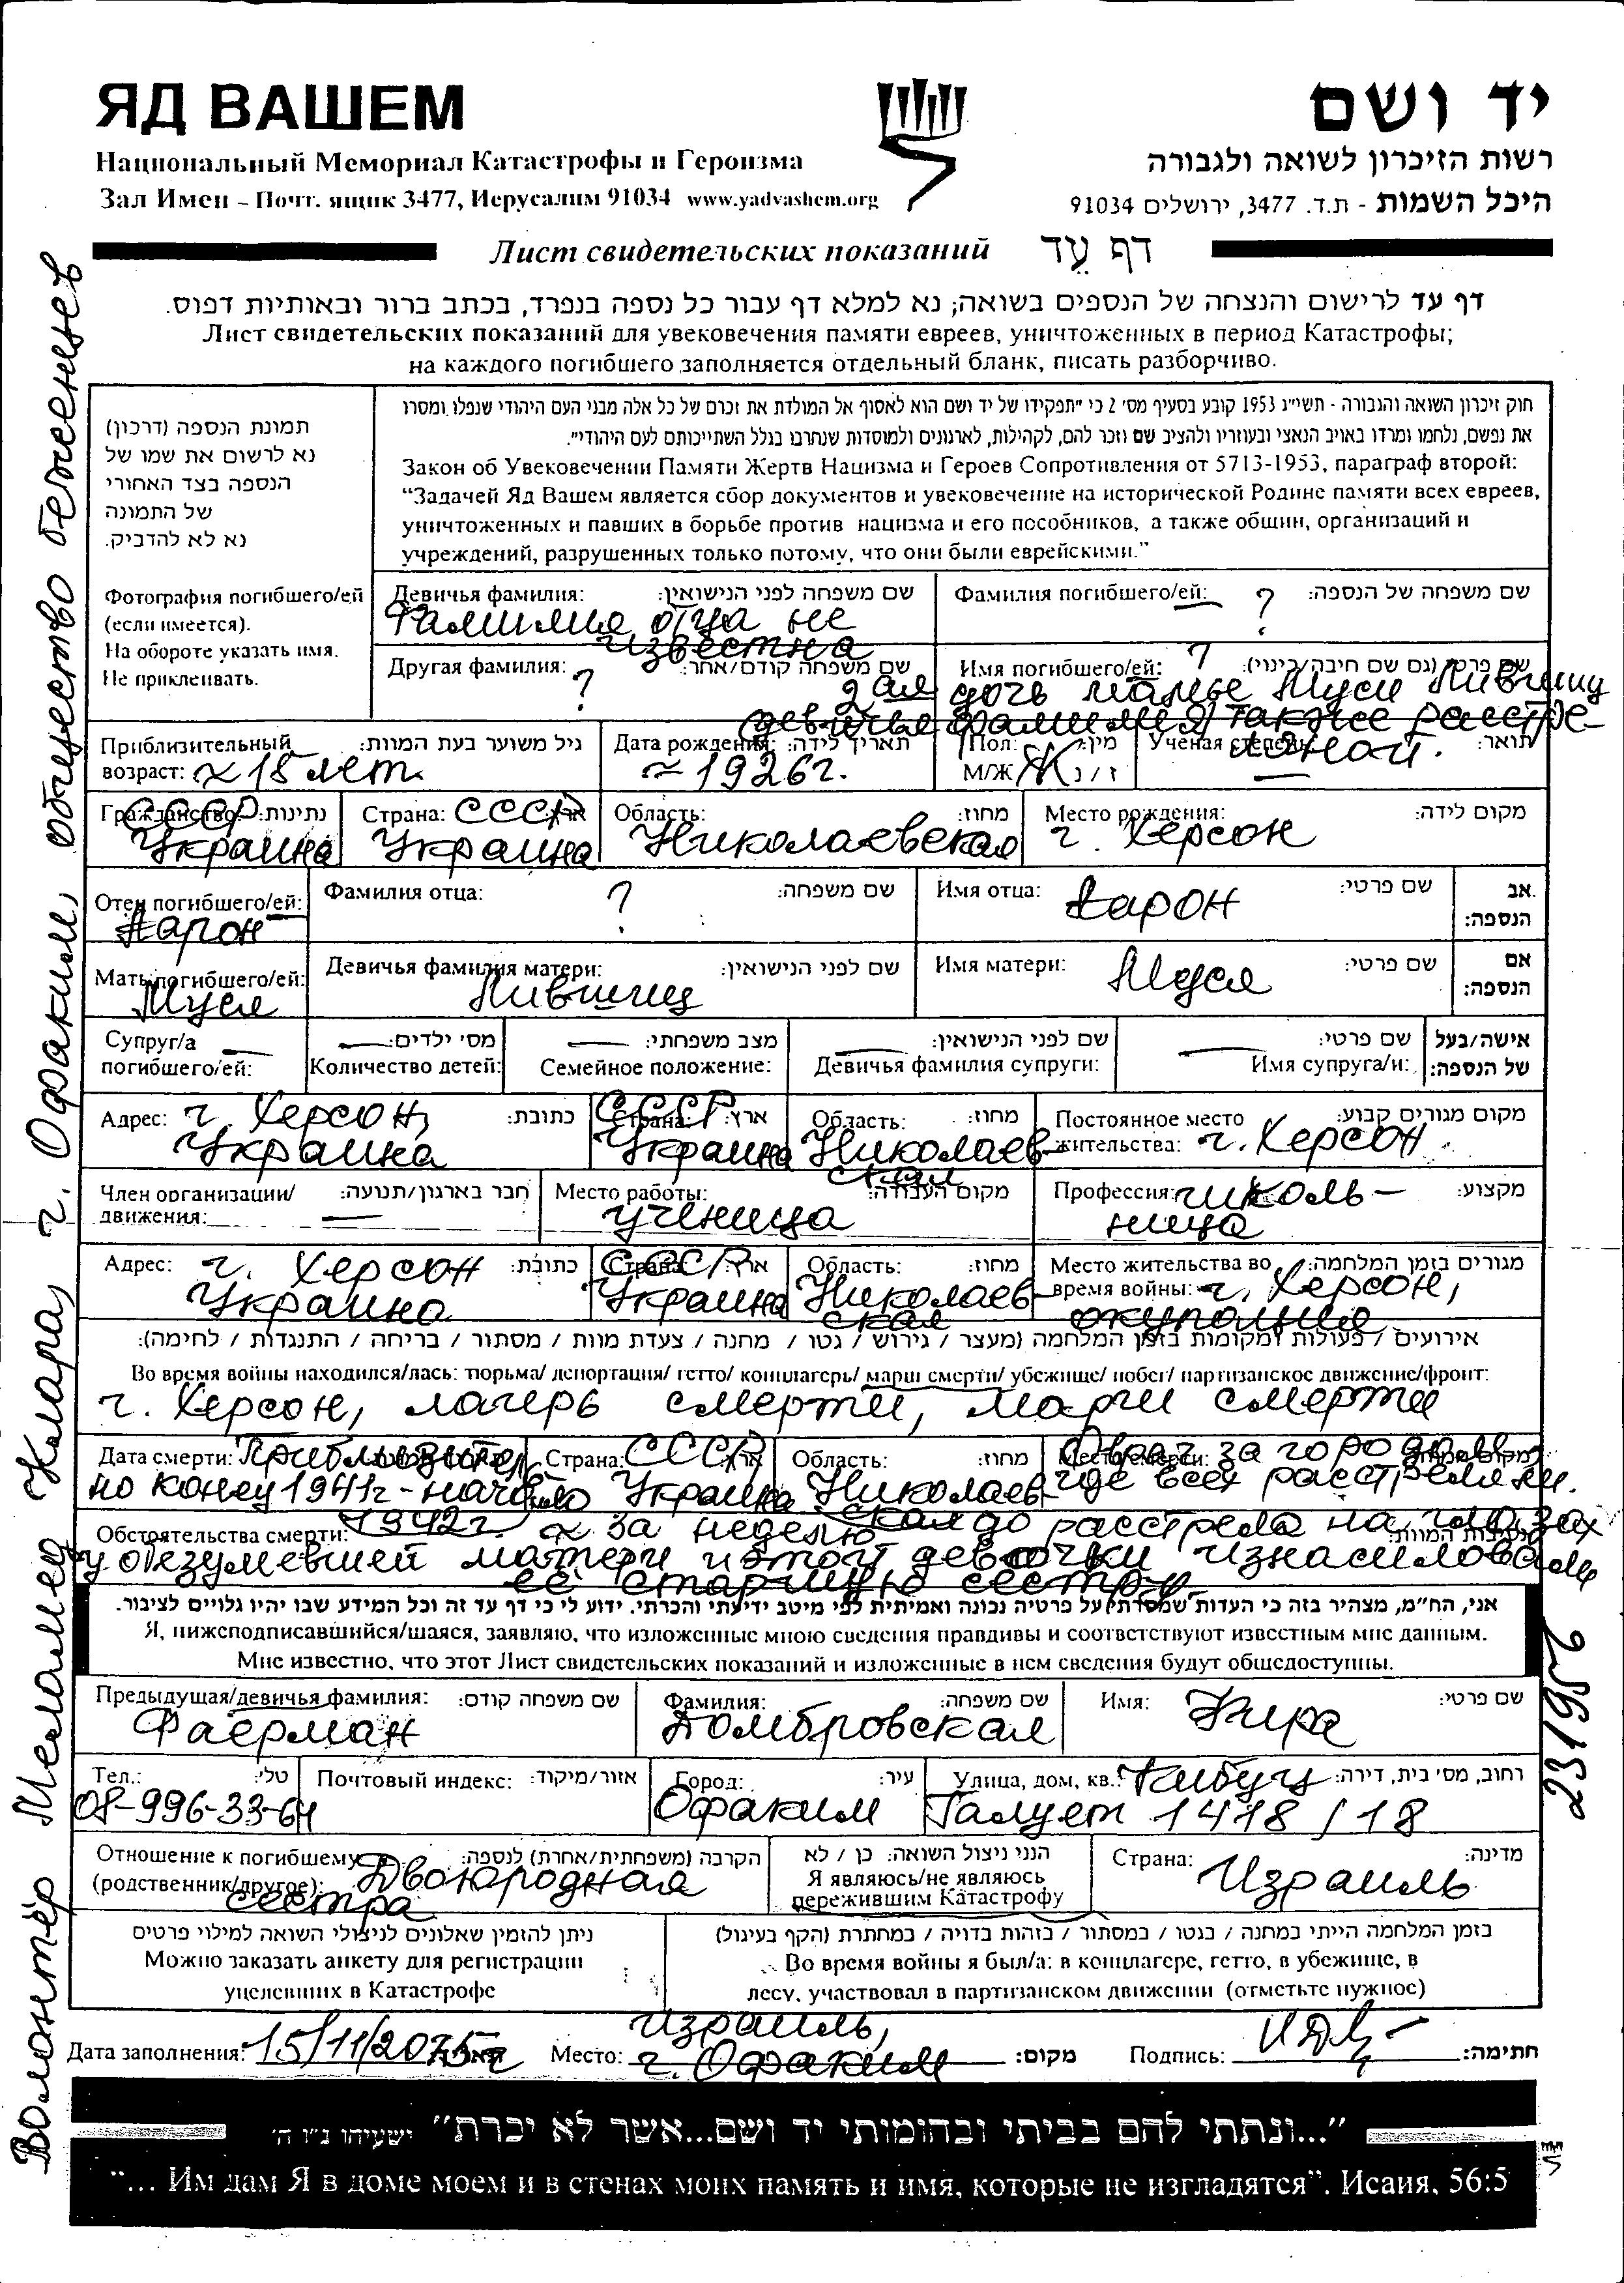 ЯД ВАШЕМ
יד ושם
Национальный Мемориал Катастрофы и Героизма
רשות הזיכרון לשואה ולגבורה
Зал Имен – Почт. ящик 3477, Иерусалим 91034 www.yadvashem.org
היכל השמות - ת.ד. 3477, ירושלים 91034
Лист свидетельских показаний דף עֵד
דף עד לרישום והנצחה של הנספים בשואה; נא למלא דף עבור כל נספה בנפרד, בכתב ברור ובאותיות דפוס.
Лист свидетельских показаний для увековечения памяти евреев, уничтоженных в период Катастрофы;
на каждого погибшего заполняется отдельный бланк, писать разборчиво.
תמונת הנספה (דרכון)
נא לרשום את שמו של
הנספה בצד האחורי
של התמונה
נא לא להדביק.
Фотография погибшего/ей
(если имеется).
На обороте указать имя.
Не приклеивать.
חוק זיכרון השואה והגבורה - תשי״ג 1953 קובע בסעיף מס׳ 2 כי ״תפקידו של יד ושם הוא לאסוף אל המולדת את זכרם של כל אלה מבני העם היהודי שנפלו ומסרו
את נפשם, נלחמו ומרדו באויב הנאצי ובעוזריו ולהציב שם וזכר להם, לקהילות, לארגונים ולמוסדות שנחרבו בגלל השתייכותם לעם היהודי״.
Закон об Увековечении Памяти Жертв Нацизма и Героев Сопротивления от 5713-1953, параграф второй:
“Задачей Яд Вашем является сбор документов и увековечение на исторической Родине памяти всех евреев,
уничтоженных и павших в борьбе против нацизма и его пособников, а также общин, организаций и
учреждений, разрушенных только потому, что они были еврейскими.”
Девичья фамилия: שם משפחה לפני הנישואין:
Фамилия отца не
известна
Фамилия погибшего/ей: ? שם משפחה של הנספה:
Другая фамилия: ? שם משפחה קודם/אחר:
Имя погибшего/ей: ? שם פרטי (גם שם חיבה/כינוי):
2ая дочь мамы Муси Лившиц
девичья фамилия) также расстре-
лянной.
Приблизительный возраст: ≈ 15 лет. גיל משוער בעת המוות:
Дата рождения: ≈ 1926г. תאריך לידה:
Пол: М/Ж Ж מין: ז / נ
Ученая степень: — תואר:
Гражданство: СССР Украина נתינות:
Страна: СССР Украина ארץ:
Область: Николаевская מחוז:
Место рождения: г. Херсон מקום לידה:
Отец погибшего/ей: Аарон
Фамилия отца: ? שם משפחה:
Имя отца: Аарон שם פרטי:
אב הנספה:
Мать погибшего/ей: Муся
Девичья фамилия матери: Лившиц שם לפני הנישואין:
Имя матери: Муся שם פרטי:
אם הנספה:
Супруг/а погибшего/ей: —
Количество детей: — מסי ילדים:
Семейное положение: — מצב משפחתי:
Девичья фамилия супруги: — שם לפני הנישואין:
Имя супруга/и: — שם פרטי:
אישה/בעל של הנספה:
Адрес: г. Херсон, Украина כתובת:
Страна: СССР Украина ארץ:
Область: Николаевская מחוז:
Постоянное место жительства: г. Херсон מקום מגורים קבוע:
Член организации/движения: — חבר בארגון/תנועה:
Место работы: ученица מקום העבודה:
Профессия: школьница מקצוע:
Адрес: г. Херсон Украина כתובת:
Страна: СССР Украина ארץ:
Область: Николаевская מחוז:
Место жительства во время войны: г. Херсон, окупация מגורים בזמן המלחמה:
אירועים / פעולות ומקומות בזמן המלחמה (מעצר / גירוש / גטו / מחנה / צעדת מוות / מסתור / בריחה / התנגדות / לחימה):
Во время войны находился/лась: тюрьма/ депортация/ гетто/ концлагерь/ марш смерти/ убежище/ побег/ партизанское движение/фронт:
г. Херсон, лагерь смерти, марш смерти
Дата смерти: Приблизительно конец 1941г - начало 1942г.
Страна: СССР Украина
Область: Николаевская מחוז:
Место смерти: Овраг за городом, где всех расстреляли.
Обстоятельства смерти: ≈ за неделю до расстрела на глазах
у обезумевшей матери и этой девочки изнасиловали
её старшую сестру.
אני, הח״מ, מצהיר בזה כי העדות שמסרתי על פרטיה נכונה ואמיתית לפי מיטב ידיעתי והכרתי. ידוע לי כי דף עד זה וכל המידע שבו יהיו גלויים לציבור.
Я, нижеподписавшийся/шаяся, заявляю, что изложенные мною сведения правдивы и соответствуют известным мне данным.
Мне известно, что этот Лист свидетельских показаний и изложенные в нем сведения будут общедоступны.
Предыдущая/девичья фамилия: Фаерман שם משפחה קודם:
Фамилия: Домбровская שם משפחה:
Имя: Кира שם פרטי:
Тел.: 08-996-33-64 טלי:
Почтовый индекс: אזור/מיקוד:
Город: Офаким עיר:
Улица, дом, кв.: Кибуц Галует 1418 / 18 רחוב, מסי בית, דירה:
Отношение к погибшему (родственник/другое): Двоюродная сестра הקרבה (משפחתית/אחרת) לנספה:
הנני ניצול השואה: כן / לא
Я являюсь/не являюсь
пережившим Катастрофу
Страна: Израиль מדינה:
ניתן להזמין שאלונים לניצולי השואה למילוי פרטים
Можно заказать анкету для регистрации
уцелевших в Катастрофе
בזמן המלחמה הייתי במחנה / בגטו / במסתור / בזהות בדויה / במחתרת (הקף בעיגול)
Во время войны я был/а: в концлагере, гетто, в убежище, в
лесу, участвовал в партизанском движении (отметьте нужное)
Дата заполнения: 15/11/2015 г Место: Израиль, г. Офаким מקום: Подпись: חתימה:
״...ונתתי להם בביתי ובחומותי יד ושם...אשר לא יכרת״ ישעיהו נ״ו ה׳
“... Им дам Я в доме моем и в стенах моих память и имя, которые не изгладятся”. Исаия, 56:5
Волонтёр Меламед Клара, г. Офаким, общество беженцев